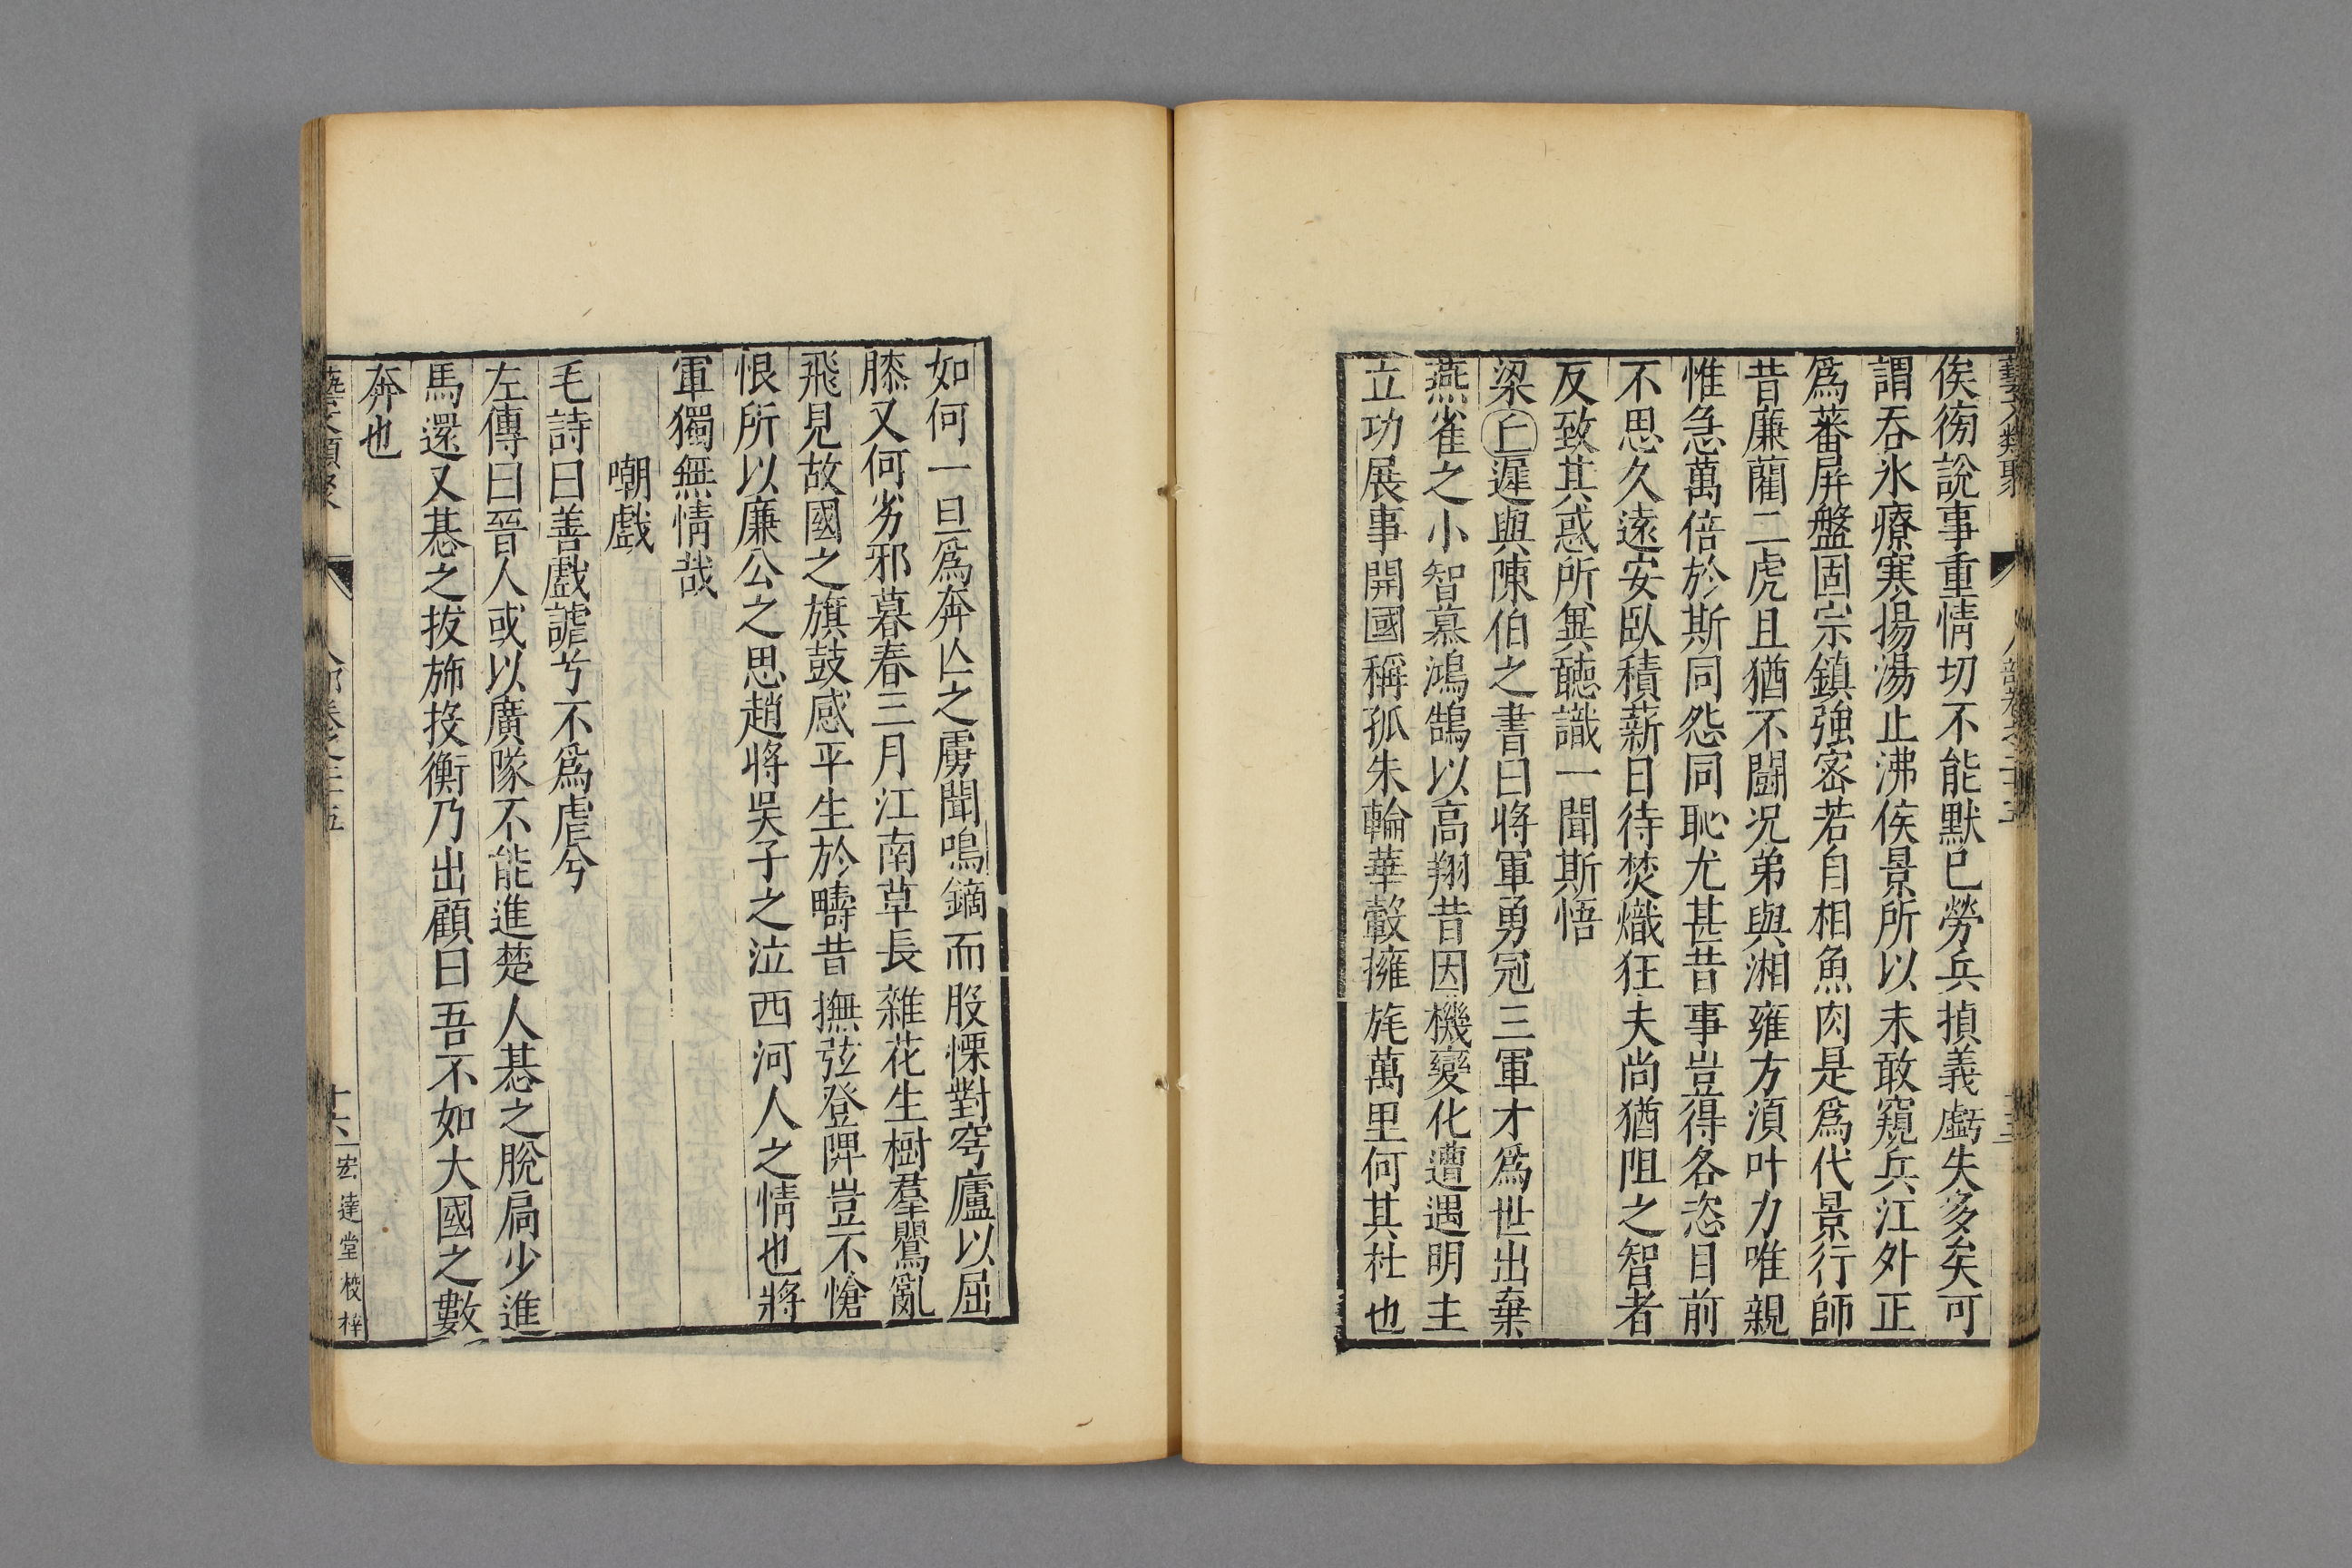 藝文類聚 人部卷之二十五
俟徬說事重情切不能默已勞兵損義虧失多矣可
謂吞氷療寒揚湯止沸侯景所以未敢窺兵江外正
爲蕃屏盤固宗鎮強宻若自相魚肉是爲代景行師
昔廉藺二虎且猶不鬬况弟與湘雍方湏叶力唯親
惟急萬倍於斯同怨同恥尤甚昔事豈得各恣目前
不思久遠安臥積薪日待焚熾狂夫尚猶阻之智者
反致其惑所兾聽識一聞斯悟
梁丘遲與陳伯之書曰將軍勇冠三軍才爲世出棄
燕雀之小智慕鴻鵠以高翔昔因機變化遭遇明主
立功展事開國稱孤朱輪華轂擁旄萬里何其壯也
如何一旦爲奔亾之虜聞鳴鏑而股慄對穹廬以屈
膝又何劣邪暮春三月江南草長雜花生樹羣鸎亂
飛見故國之旗鼓感平生於疇昔撫弦登陴豈不愴
恨所以廉公之思趙將吳子之泣西河人之情也將
軍獨無情哉
嘲戲
毛詩曰善戲謔兮不爲虐兮
左傳曰晉人或以廣隊不能進楚人惎之脫扃少進
馬還又惎之拔斾投衡乃出顧曰吾不如大國之數
奔也
藝文類聚 人部卷之二十五 十六 宏達堂校梓